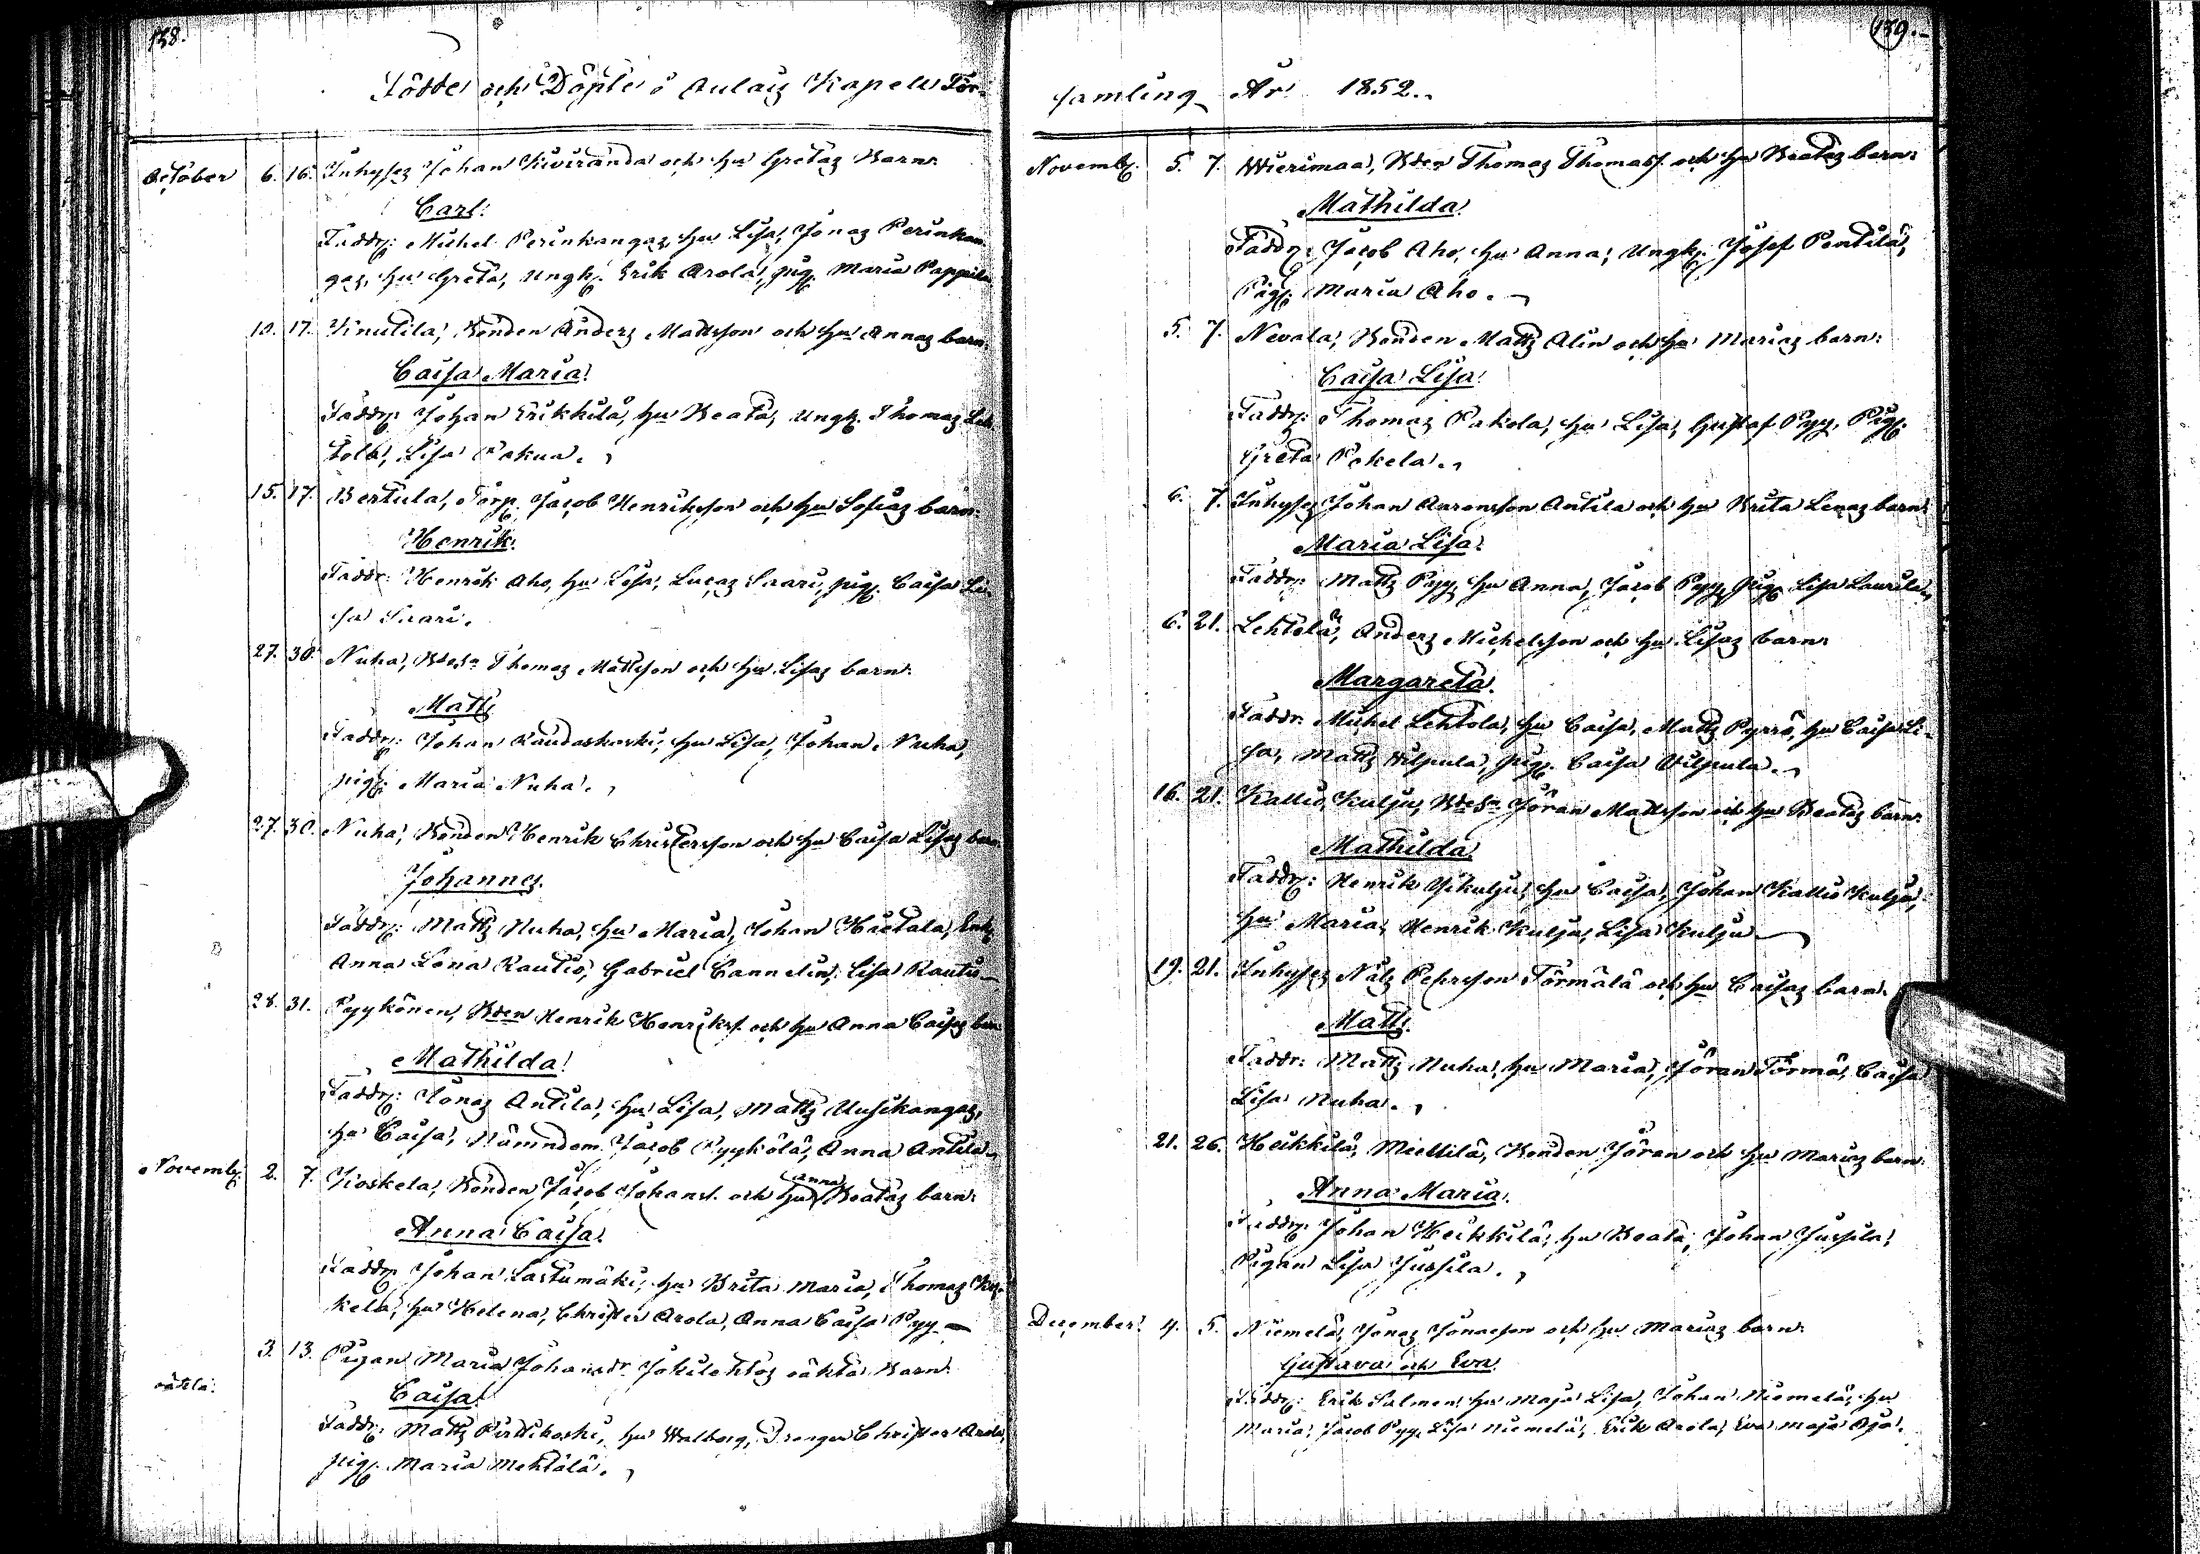 138.
Födde och Döpte i Aulais Kapells För-
October 6. 16. Inhyses Johan Kiviranda och hu Gretas Barn:
Carl.
Faddr: Michel Perinkangas, hu Lisa, Jonas Perinkan
gas, hu Greta, Ungk. Erik Arola, pig. Maria
10. 17. Knutila, Bonden Anders Mattsson och hu Annas barn:
Caisa Maria.
Faddr: Johan Erikkilä, hu Beata, Ungk. Thomas Leh
tola, Lisa Pokua.
15. 17. Bertula, Torp. Jacob Henriksson och hu Sofias barn:
Henrik.
Faddr: Henrik Aho, hu Lisa, Lucas Saari, pig. Caisa Li-
sa Saari.
27. 30. Nuha, Thomas Mattsson och hu Lisas barn:
Matts
Faddr: Johan Raudaskoski, hu Lisa, Johan Nuha,
pig: Maria Nuha.
27. 30. Nuha, Bonden Henrik Christersson och hu Caisa Lisas barn
Johannes.
Faddr: Matts Nuha, hu Maria, Johan Haitala, Enk
Anna Lena Rautio, Gabriel Cannelin, Lisa Rautio
28. 31. Pyykönen, Bden Henrik Henrikss. och hu Anna Caisas barn
Mathilda.
Faddr: Jonas Antila, hu Lisa, Matts Uusikangas,
hu Caisa, Nämndem. Jacob Pyykölä, Anna Antila
Novemb: 2. 7. Koskela, Bonden Jacob Johanss. och hu Anna Beatas barn:
Anna Caisa.
Faddr: Johan Lastumäki, hu Brita Maria, Thomas Kos-
kela, hu Helena, Christer Arola, Anna Caisa Pyy
3. 13. Pigan Maria Johansdr Jokilehtos oäkta Barn:
oäkta.
Caisa.
Faddr: Matts Pirttikoski, hu Walborg, Drengen Christer Arola,
pig. Maria Mehtälä.
139.
samling År 1852.
Novemb: 5. 7. Wierimaa, Bden Thomas Thomass. och hu Beatas barn:
Mathilda.
Faddr: Jacob Aho, hu Anna, Ungk. Josef Pentilä,
Pig: Maria Aho.
5. 7. Nevala, Bonden Matts Alin och hu Marias barn:
Caisa Lisa.
Faddr: Thomas Pakola, hu Lisa, Gustaf Pyy, Pig:
Greta Pokela.
6. 7. Inhyses Johan Aaronsson Antila och hu Brita Lenas barn:
Maria Lisa.
Faddr: Matts Pyy, hu Anna, Jacob Pyy, pig. Lisa Laurila,
6. 21. Lehtola, Anders Michelsson och hu Lisas barn:
Margareta.
Faddr: Michel Lehtola, hu Caisa, Matts Pyrrö, hu Caisa Li-
sa, Matts Vilpula, pig. Caisa Vilpula.
16. 21. Kallio Kulju, Jöran Mattsson och hu Beatas barn:
Mathilda.
Faddr: Henrik Ylikulju, hu Caisa, Johan Kallio Kulju,
hu Maria, Henrik Kulju, Lisa Kulju
19. 21. Inhyses Nils Pehrsson Törmälä och hu Caisas barn:
Matts.
Faddr: Matts Nuha, hu Maria, Jöran Törmä, Caisa
Lisa Nuha.
21. 26. Heikkilä, Miettilä, Bonden Jöran och hu Marias barn:
Anna Maria.
Faddr: Johan Heikkilä, hu Beata, Johan Jussila,
Pigan Lisa Jussila.
December. 4. 5. Niemelä, Jonas Jonasson och hu Marias barn:
Gustava och Eva.
Faddr: Erik Salmen, hu Maja Lisa, Johan Niemelä, hu
Maria, Jacob Pyy, Lisa Niemelä, Erik Arola, Eva Maja Oja.